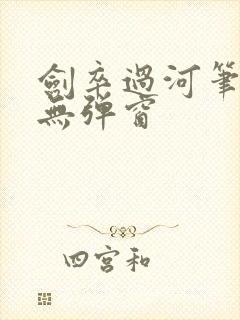 劍卒過河筆
無彈窗
四宮和